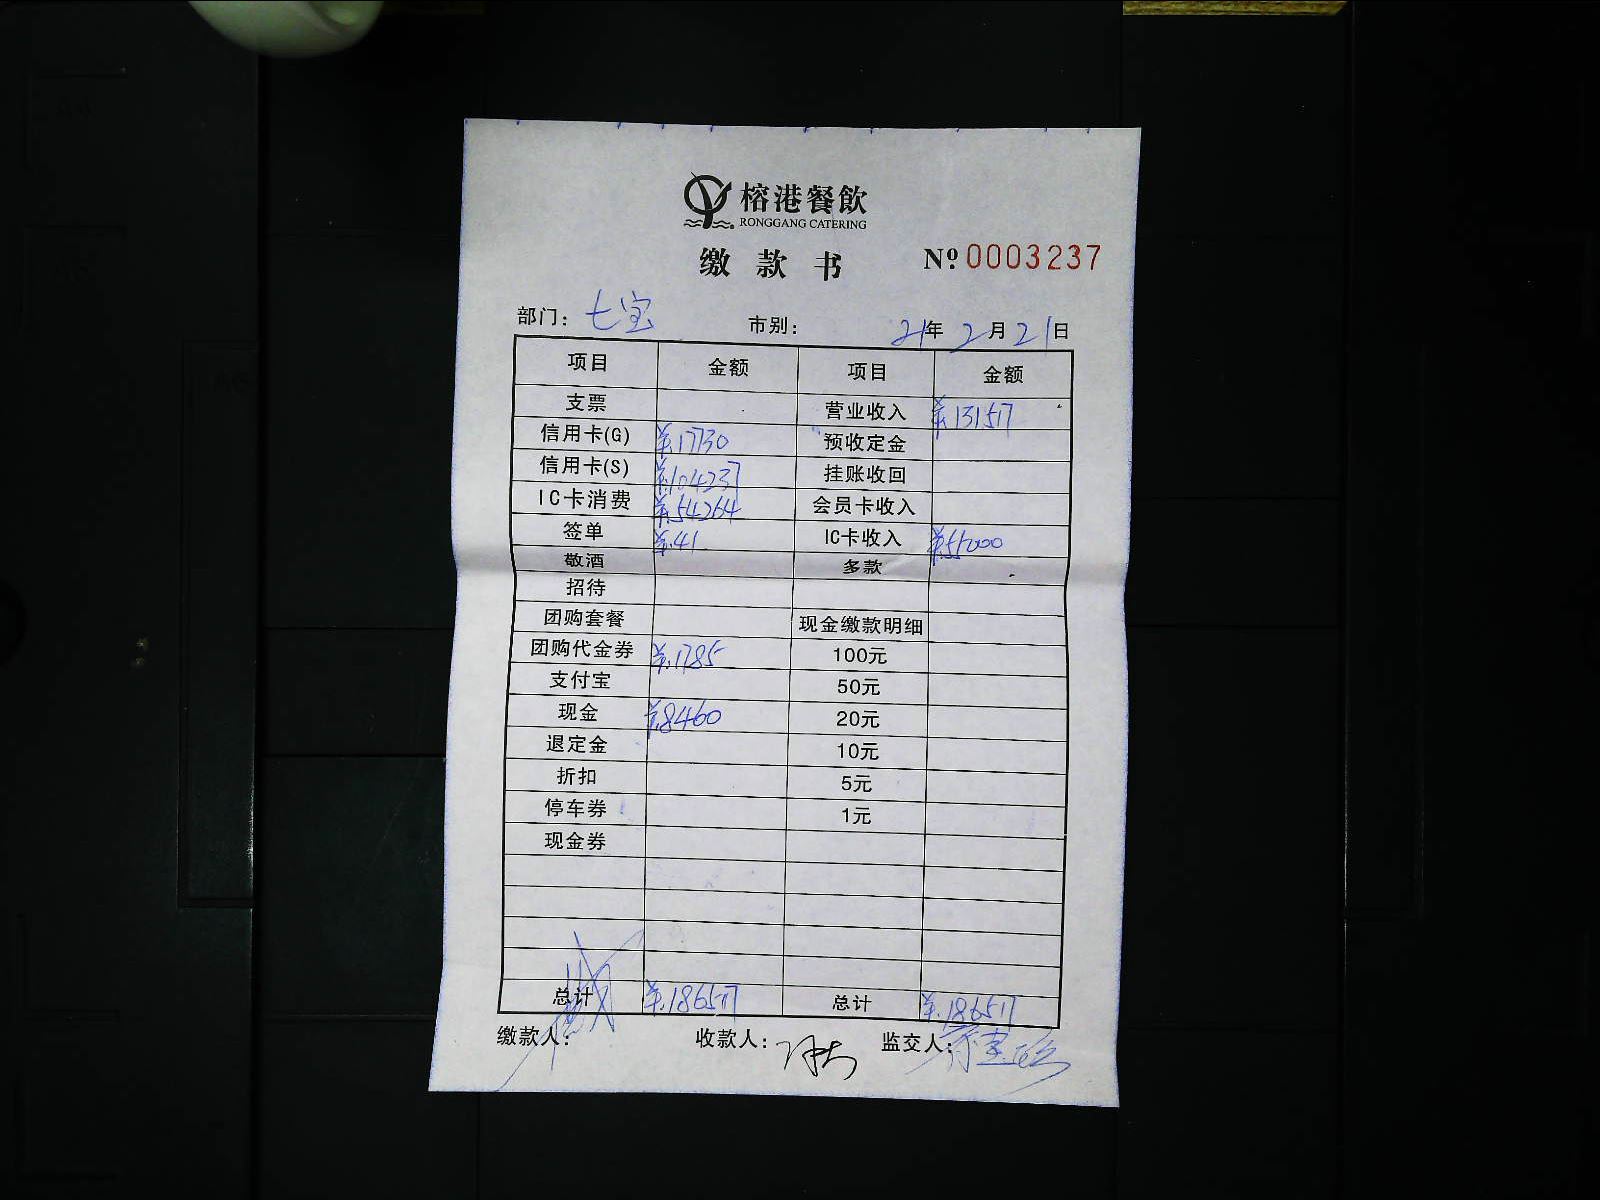 榕港餐飲
RONGGANG CATERING
缴款书 №0003237
部门：七宝 市别： 21年2月21日
项目 金额 项目 金额
支票 营业收入 ¥131517
信用卡(G) ¥17730 预收定金
信用卡(S) ¥104237 挂账收回
IC卡消费 ¥54264 会员卡收入
签单 ¥41 IC卡收入 ¥55000
敬酒 多款
招待
团购套餐 现金缴款明细
团购代金券 ¥1785 100元
支付宝 50元
现金 ¥8460 20元
退定金 10元
折扣 5元
停车券 1元
现金券
总计 ¥186517 总计 ¥186517
缴款人： 收款人： 监交人：